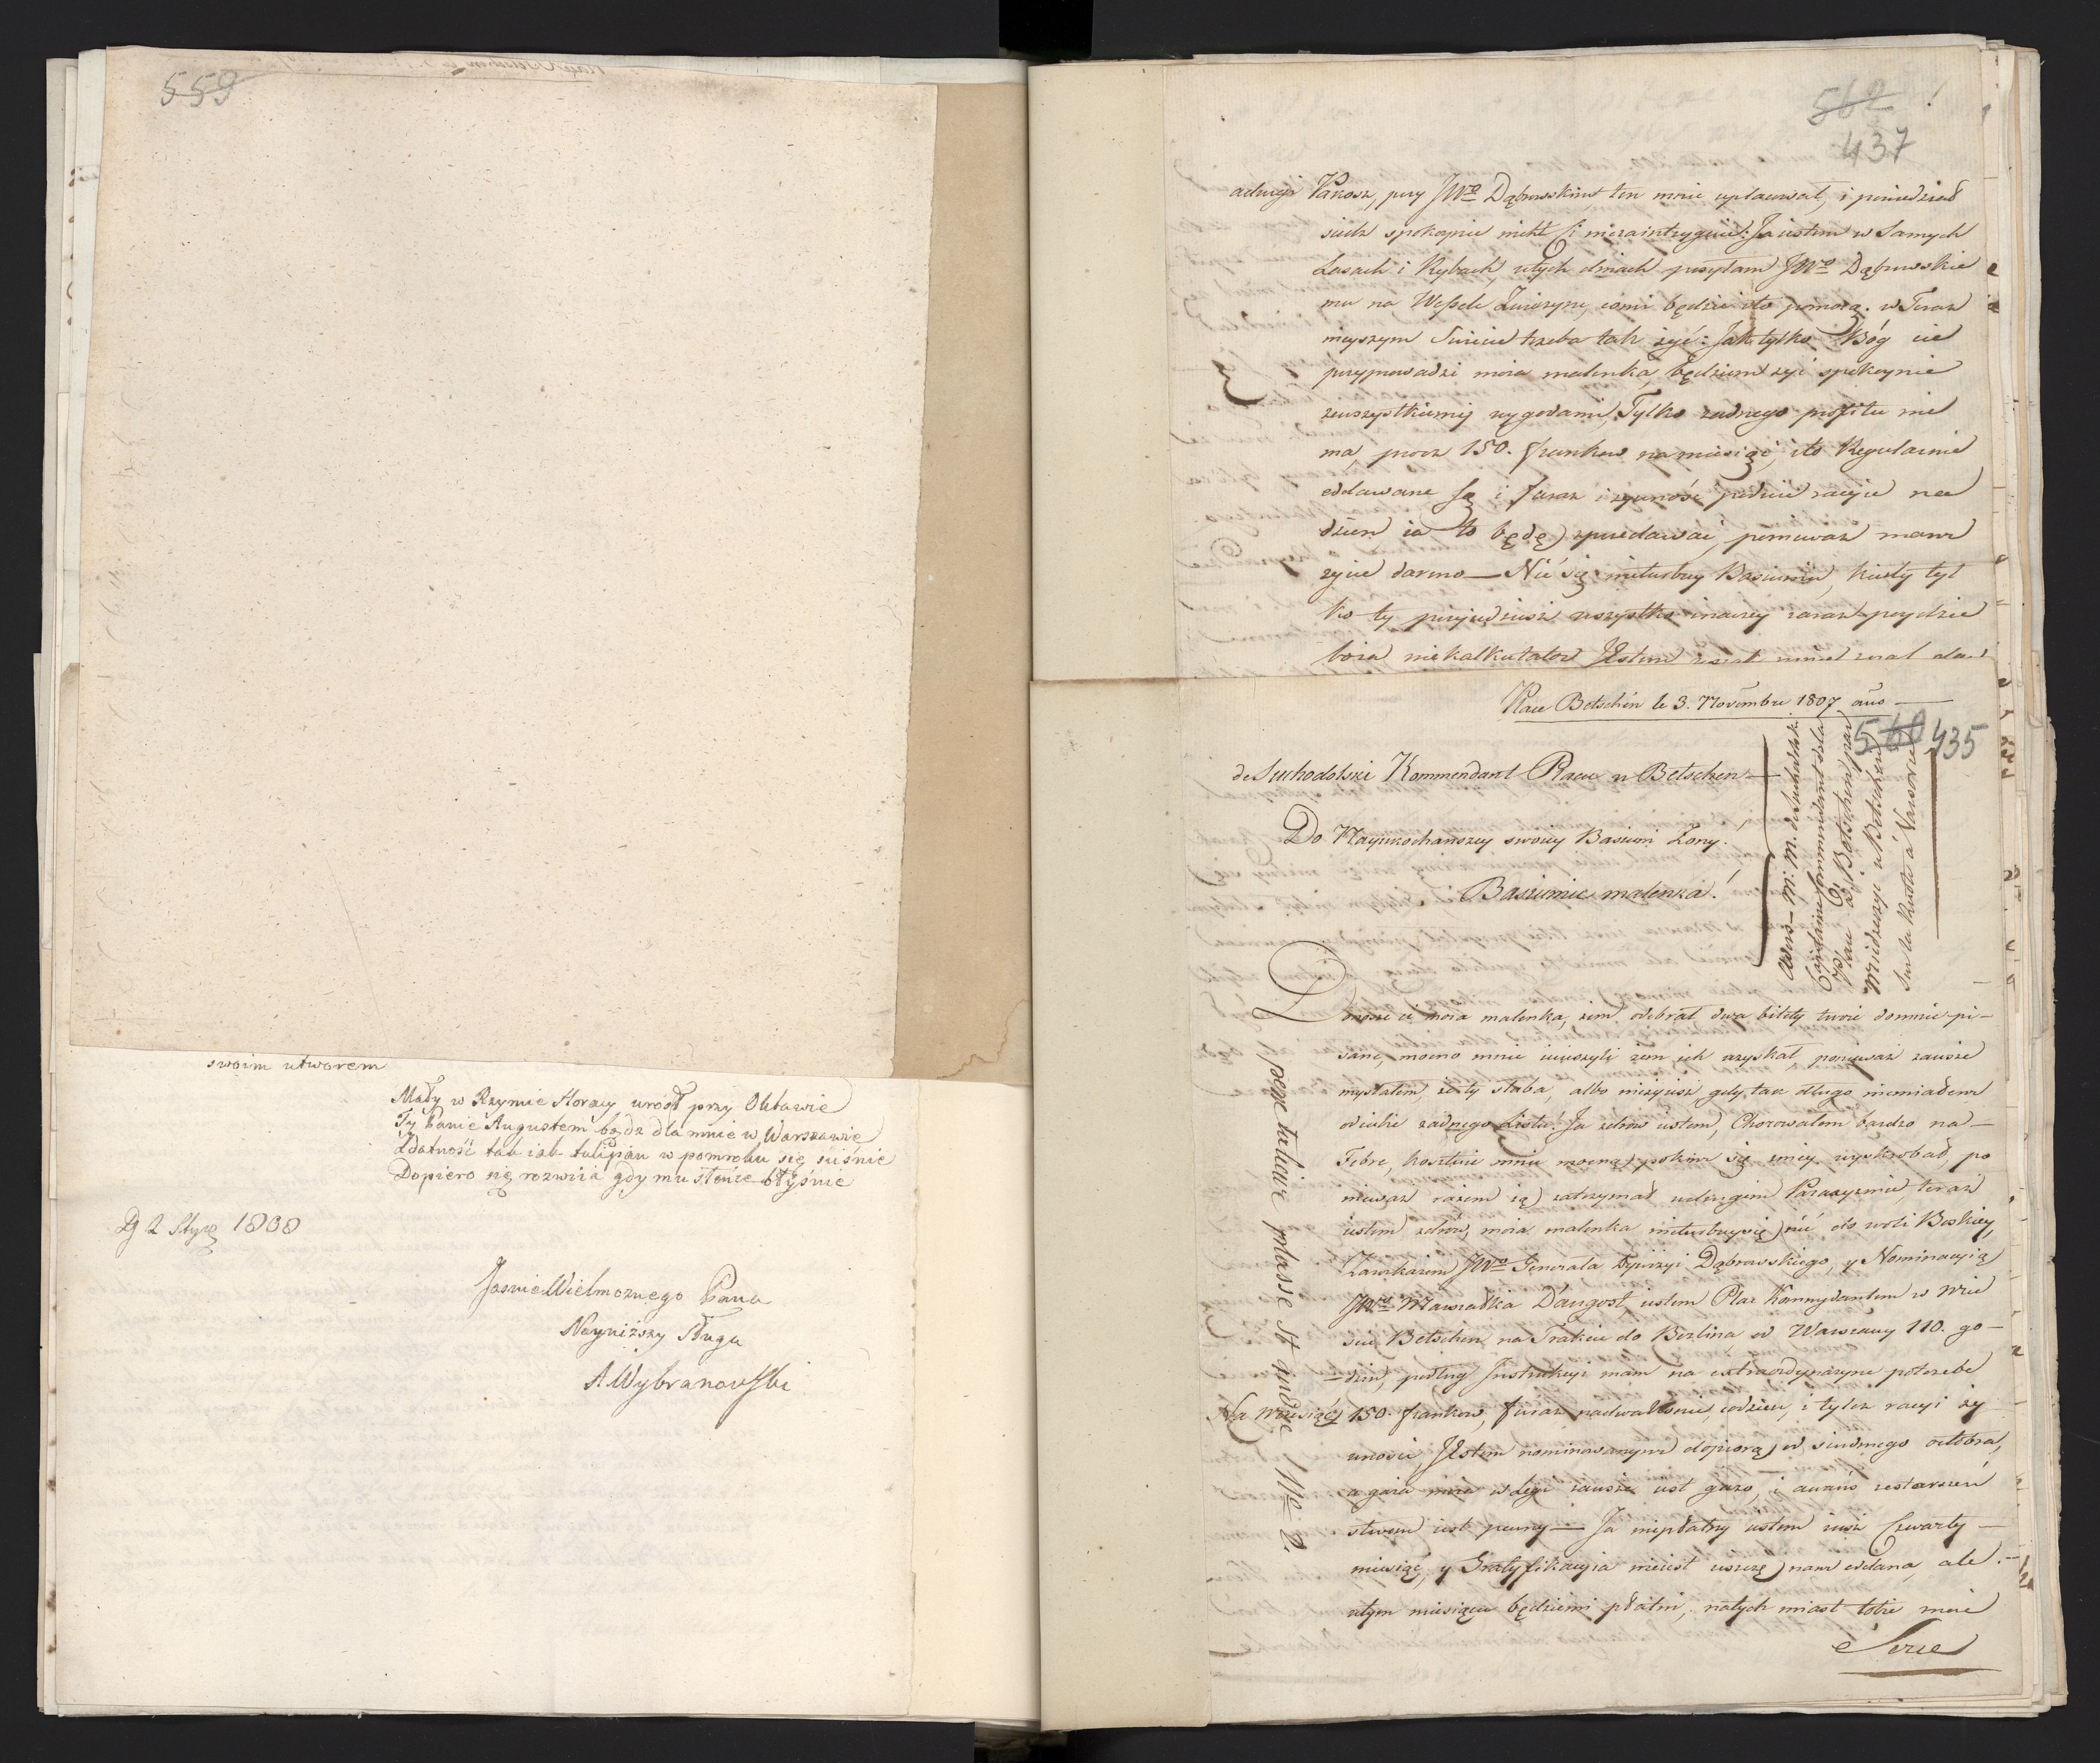 559
swoim utworem
Mały w Rzymie Horacy urósł przy Oktawie
Ty Panie Augustem bądz dla mnie w Warszawie
Zdatność tak iak tulipan w pomroku się ściśnie
Dopiero się rozwiia gdy mu słońce błyśnie
D 2 Stycz 1808
Jasnie Wielmoznego Pana
Nayniższy Sługa
A Wybranowski
562
437
Pakosz, przy JWo Dąbrowskim ten mnie i powiedział
siedz spokoynie nicht Ci niezaintryguie: Ja iestem w Samych
Lasach i Rybach, wtych dniach posyłam JWo Dąbrowskie
mu na Wesele Zwierzynę, iomi będzie do pomocą. w Teraz
nieyszym Swiecie trzeba tak zyć: Jak tylko Bóg cie
przyprowadzi moia malenka, będziem zyć spokoynie
zewszystkiemy wygodami, Tylko zadnego profitu nie
ma, procz 150. frankow na miesiąc, ito Regularnie
oddawane są i furaz i zywność racyie na
dzien ia to będę sprzedawać, poniewaz mam
zycie darmo — Nic się nieturbuy Basiuniu, kiedy tyl
ko ty przyiedziesz wszystko inaczey zaraz poydzie
boia niekalkulator Jestem
Place Betschen le 3. Novembre 1807 ano
560 435
de Suchodolski Kommendant Place w Betschen —
Do Nayukochanszey swoiey Basiuni Zony!
Basiunie malenka!
Adres — M: M. de Suchodolski
Capitaine Commendant dela
Place à Betschen
Miedzerzyc u Betschen
Sur la Route à Varsovie
Donosze ci moia malenka, zem odebrał dwa bilety twoie domnie pi-
sane, mocno mnie ucieszyli zem ich uzyskał, poniewaz zawsze
myslałem, zesty słaba, albo niezyiesz, gdy tak długo niemiałem
odciebie zadnego Listu! Ja zdrow iestem, Chorowałem bardzo na —
Febre, kosztuie mnie mocną pokim się zniey wyskrobał, po
niewaz razem ią zatrzymał wdrugim Paraxyzmie, teraz
iestem zdrow, moia malenka nieturbuysię nic do woli Boskiey,
Zarozkazem JWo Generała Dywizyi Dąbrowskiego, y Nominacyią
JWo Marszałka Dangost, iestem Plac Kommydantem w Mie
scie Betschen na Trakcie do Berlina od Warszawy 110. go-
dzin, podług Jnstrukcyi mam na extraordynaryine potrzebe
Na Miesiąc 150. frankow, furaz nadwa konie, codzien, i tylez racyi zy
wnosci, Jestem nominowanym dopierą od siudmego octobra,
a gaza moia w Legii zawsze iest gazo, i awans zestarszeń
stwem iest pewny — Ja niepłatny iestem iusz Czwarty —
miesiąc, y Gratyfikacyia nieiest ieszcze nam oddana, ale —
wtym miesiącu będziemi płatni, natych miast tobie moie
Serce
No: 2.